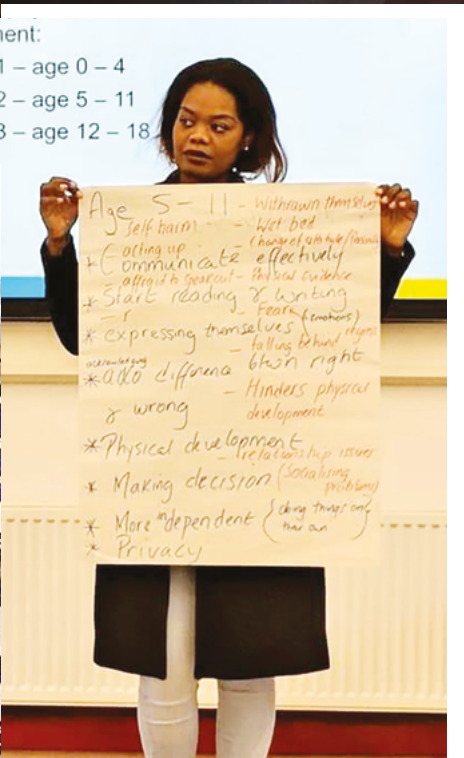 ent:
1 – age 0 – 4
2 – age 5 – 11
3 – age 12 – 18
Age 5 - 11 - Withdrawn themselves
self harm - Wet bed
- acting up - Change of attitude/
* Communicate effectively
- affraid to speak out - Physical evidence
* Start reading & writing
- Fear
* expressing themselves (Emotions)
- falling behind
* difference btwn right
- Hinders physical
& wrong development
* Physical development
- relationship issues
* Making decision (Socialising problems)
* More independent (doing things on their own)
* Privacy